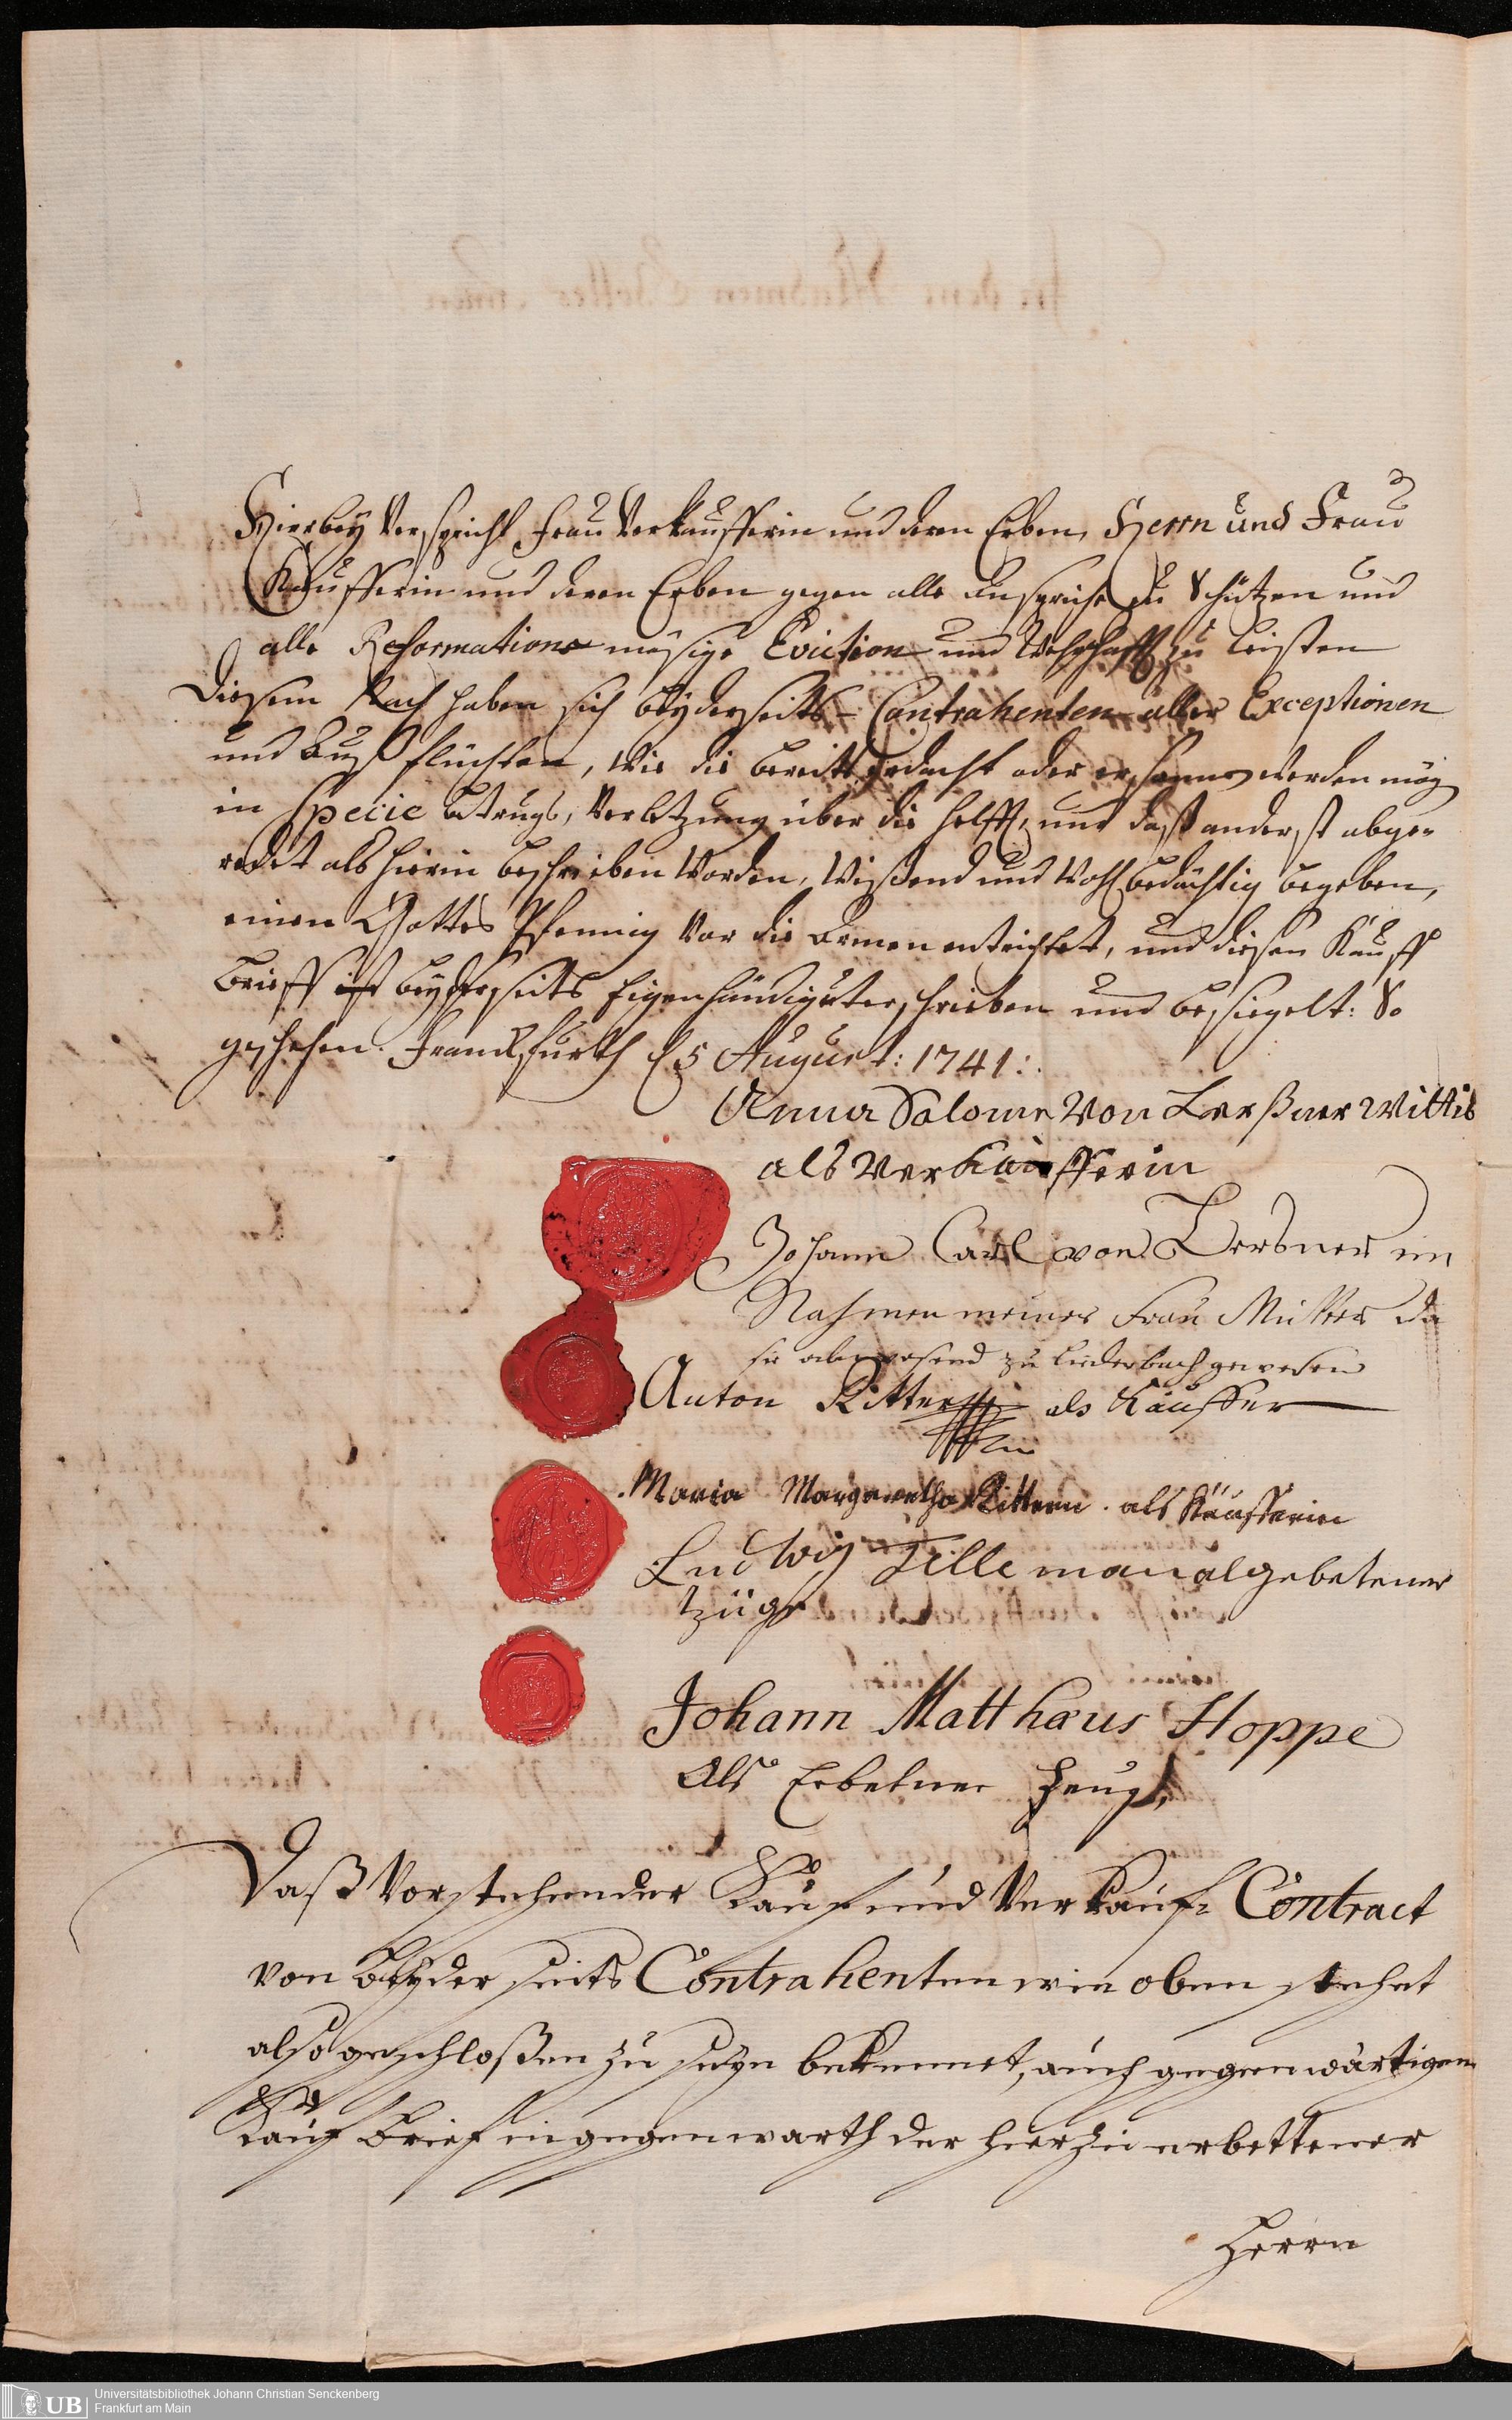 Hierbey Verspricht Frau Verkaufferin und deren Erben, Herrn und Frau
Käufferin und deren Erben gegen alle Ansprüche zu Schützen und
alle Reformations mäsige Eviction und Wehrschafft zu leisten
Diesem Nach haben sich beyderseits Contrahenten aller Exceptionen
und Ausflüchten, Wie die bereits gedacht oder ersonnen werden mög
in Specie betrugs, Verletzung über die helfft, und daß anderst abge-
redet als hierin beschrieben Worden, Wißend und Wohlbedächtig begeben,
einen Gottes Pfennig Vor die Armen entrichtet, und diesen Kauff
brieff beyderseits Eigenhändig unterschrieben und besiegelt: So
geschehen. Franckfurth d 5 August: 1741:
Anna Salome Von Lerßner Wittib
als Verkaufferin
Johann Carl von Lersner im
Nahmen meiner Frau Mutter da
sie abwesend zu liederbach gewesen
Anton Ritter als Käuffer
Maria Margaretha Rittern. als Käufferin
Ludwig Tilleman als gebetener
tzüge
Johann Matthæus Hoppe
Als Erbetner Zeuge,
Daß Vorstehender Kauf und Verkauf- Contract
von Beyderseits Contrahenten wie oben stehet
also geschloßen zu seyn bekennet, auch gegenwärtigen
Kauf Brief in gegenwarth der hierzu erbettener
Herrn
UB
Universitätsbibliothek Johann Christian Senckenberg
Frankfurt am Main